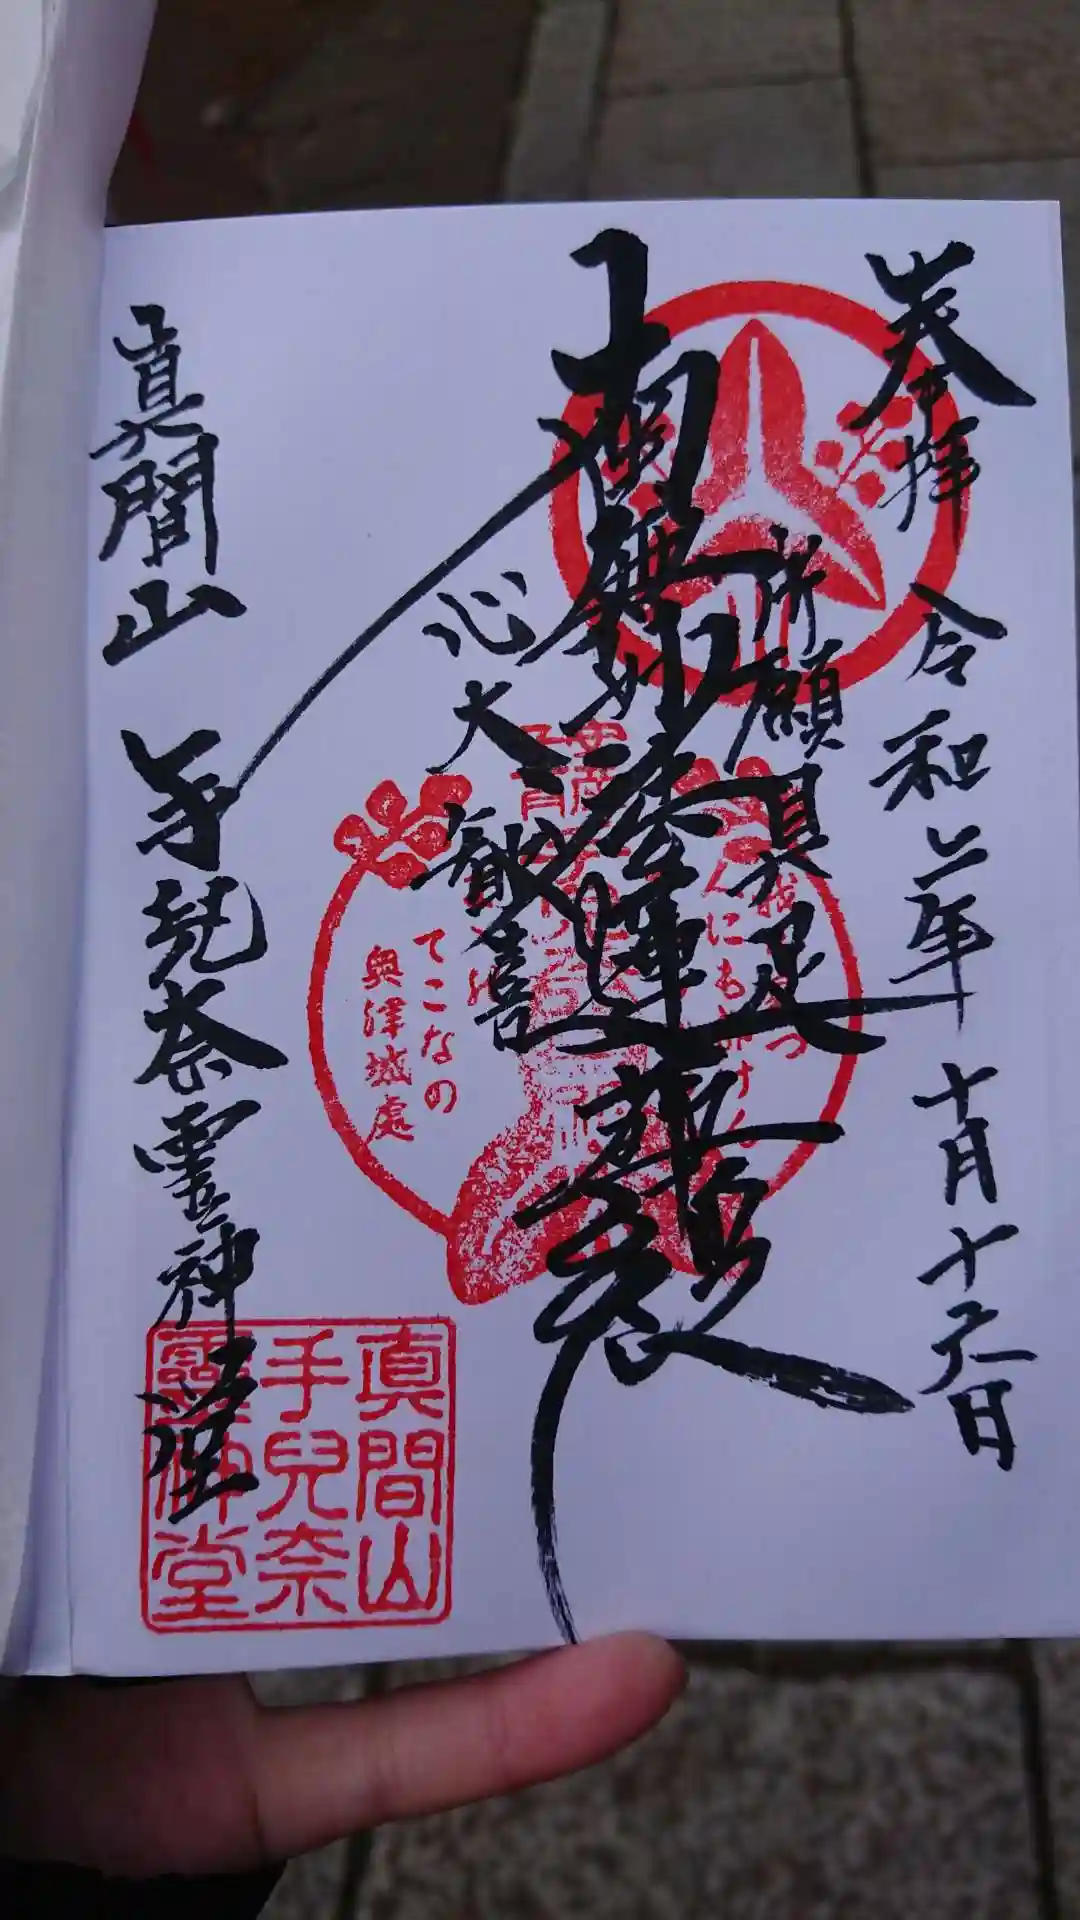 奉拝
令和二年十月十六日
所願具足
南無妙法蓮華経
心大歓喜
真間山 手兒奈霊神堂
てこなの
奥津城處
真間山
手兒奈
靈神堂